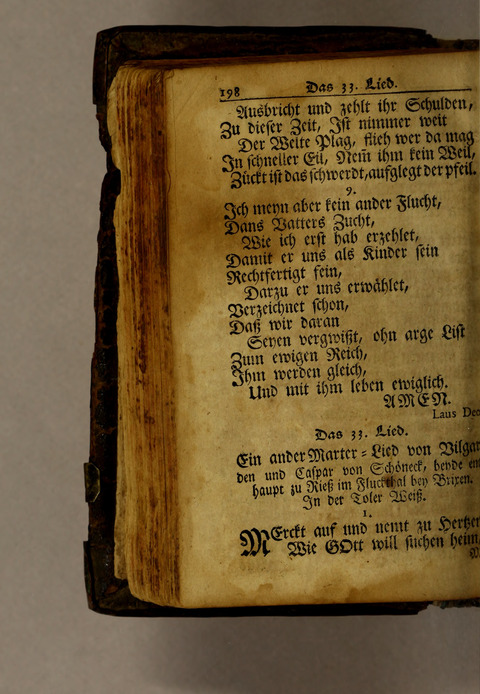 198 Das 33. Lied.
Ausbricht und zehlt ihr Schulden,
Zu dieser Zeit, Ist nimmer weit
Der Welte Plag, flieh wer da mag
In schneller Eil, Nem̃ ihm kein Weil,
Zückt ist das schwerdt, aufglegt der pfeil.
9.
Ich meyn aber kein ander Flucht,
Dans Vatters Zucht,
Wie ich erst hab erzehlet,
Damit er uns als Kinder sein
Rechtfertigt fein,
Darzu er uns erwählet,
Verzeichnet schon,
Daß wir daran
Seyen vergwißt, ohn arge List
Zum ewigen Reich,
Ihm werden gleich,
Und mit ihm leben ewiglich.
AMEN.
Laus Deo
Das 33. Lied.
Ein ander Marter-Lied von Vilgar
den und Caspar von Schöneck, beyde ent
haupt zu Rieß im Fluckthal bey Brixen.
In der Toler Weiß.
1.
MErckt auf und nemt zu Hertzen
Wie GOtt will suchen heim